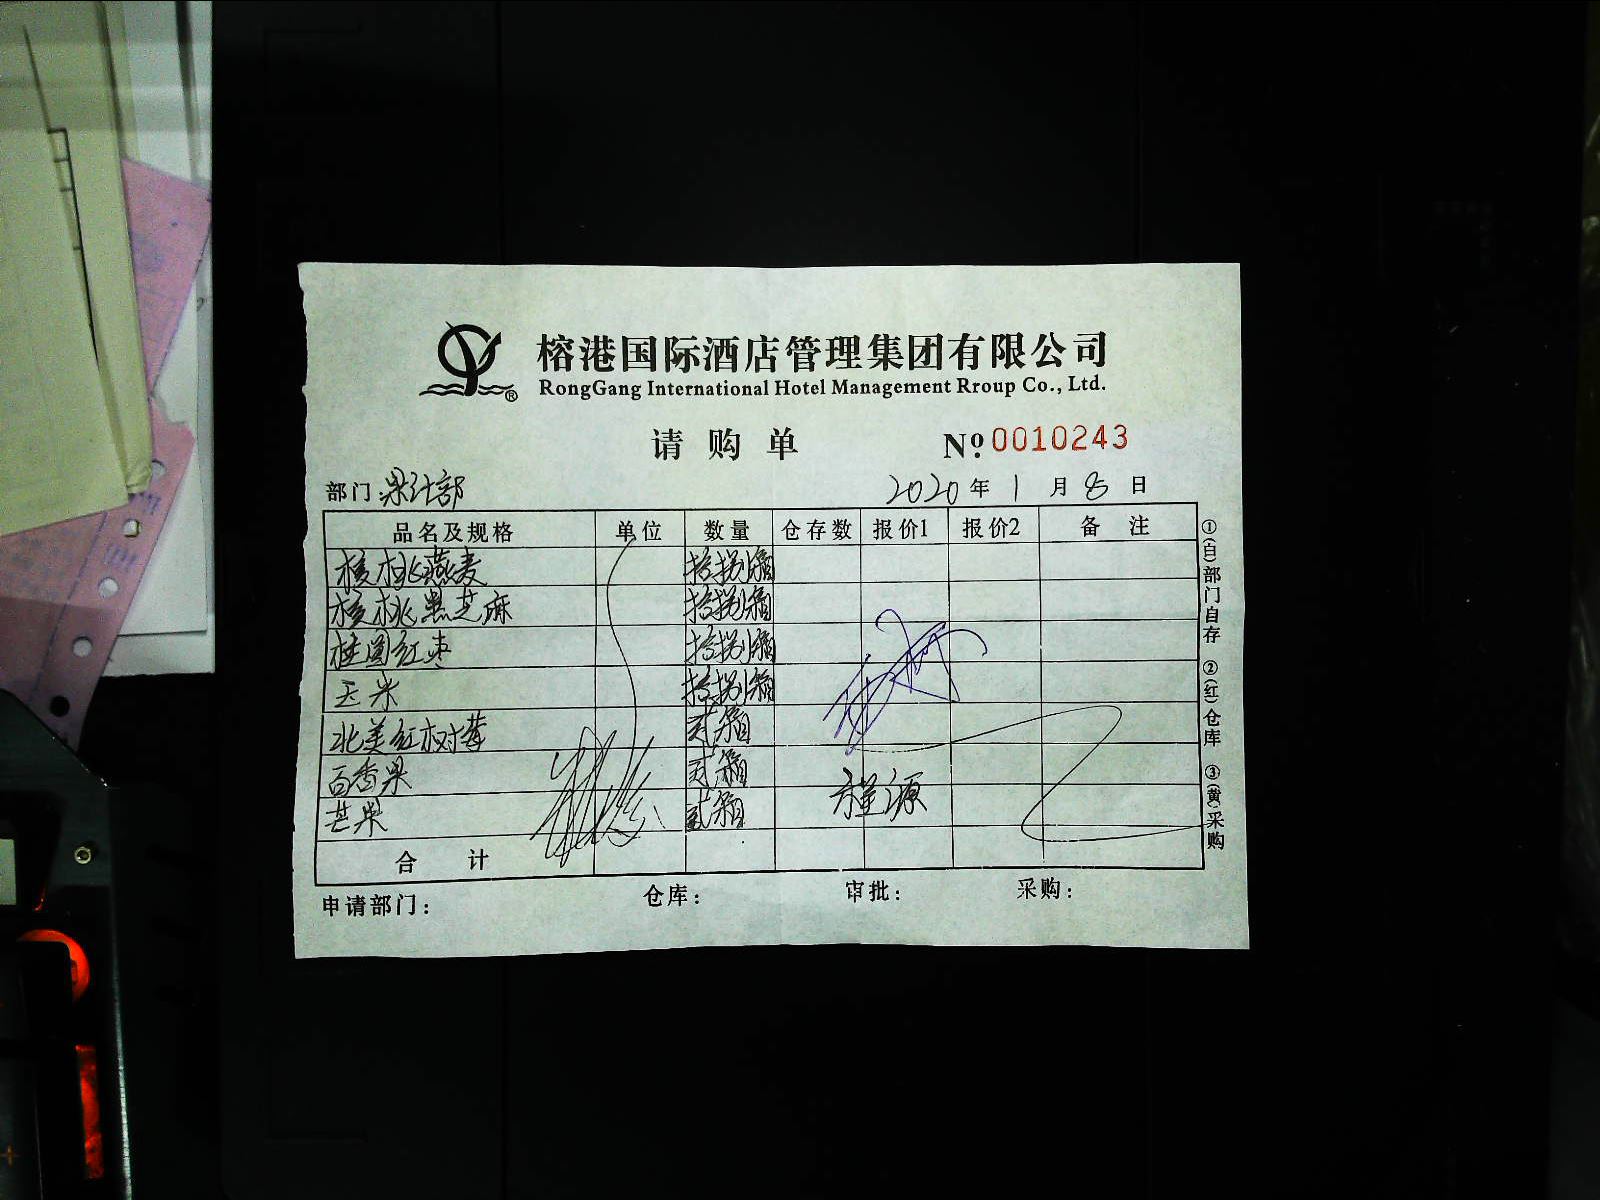 榕港国际酒店管理集团有限公司
RongGang International Hotel Management Rroup Co., Ltd.
请购单 Nº 0010243
部门:果汁部 2020年1月8日
品名及规格 单位 数量 仓存数 报价1 报价2 备注
核桃燕麦 拾捌箱
核桃黑芝麻 拾捌箱
桂圆红枣 拾捌箱
玉米 拾捌箱
北美红树莓 贰箱
百香果 贰箱
芒果 贰箱
合计
申请部门: 仓库: 审批: 采购:
①(白)部门自存 ②(红)仓库 ③(黄)采购